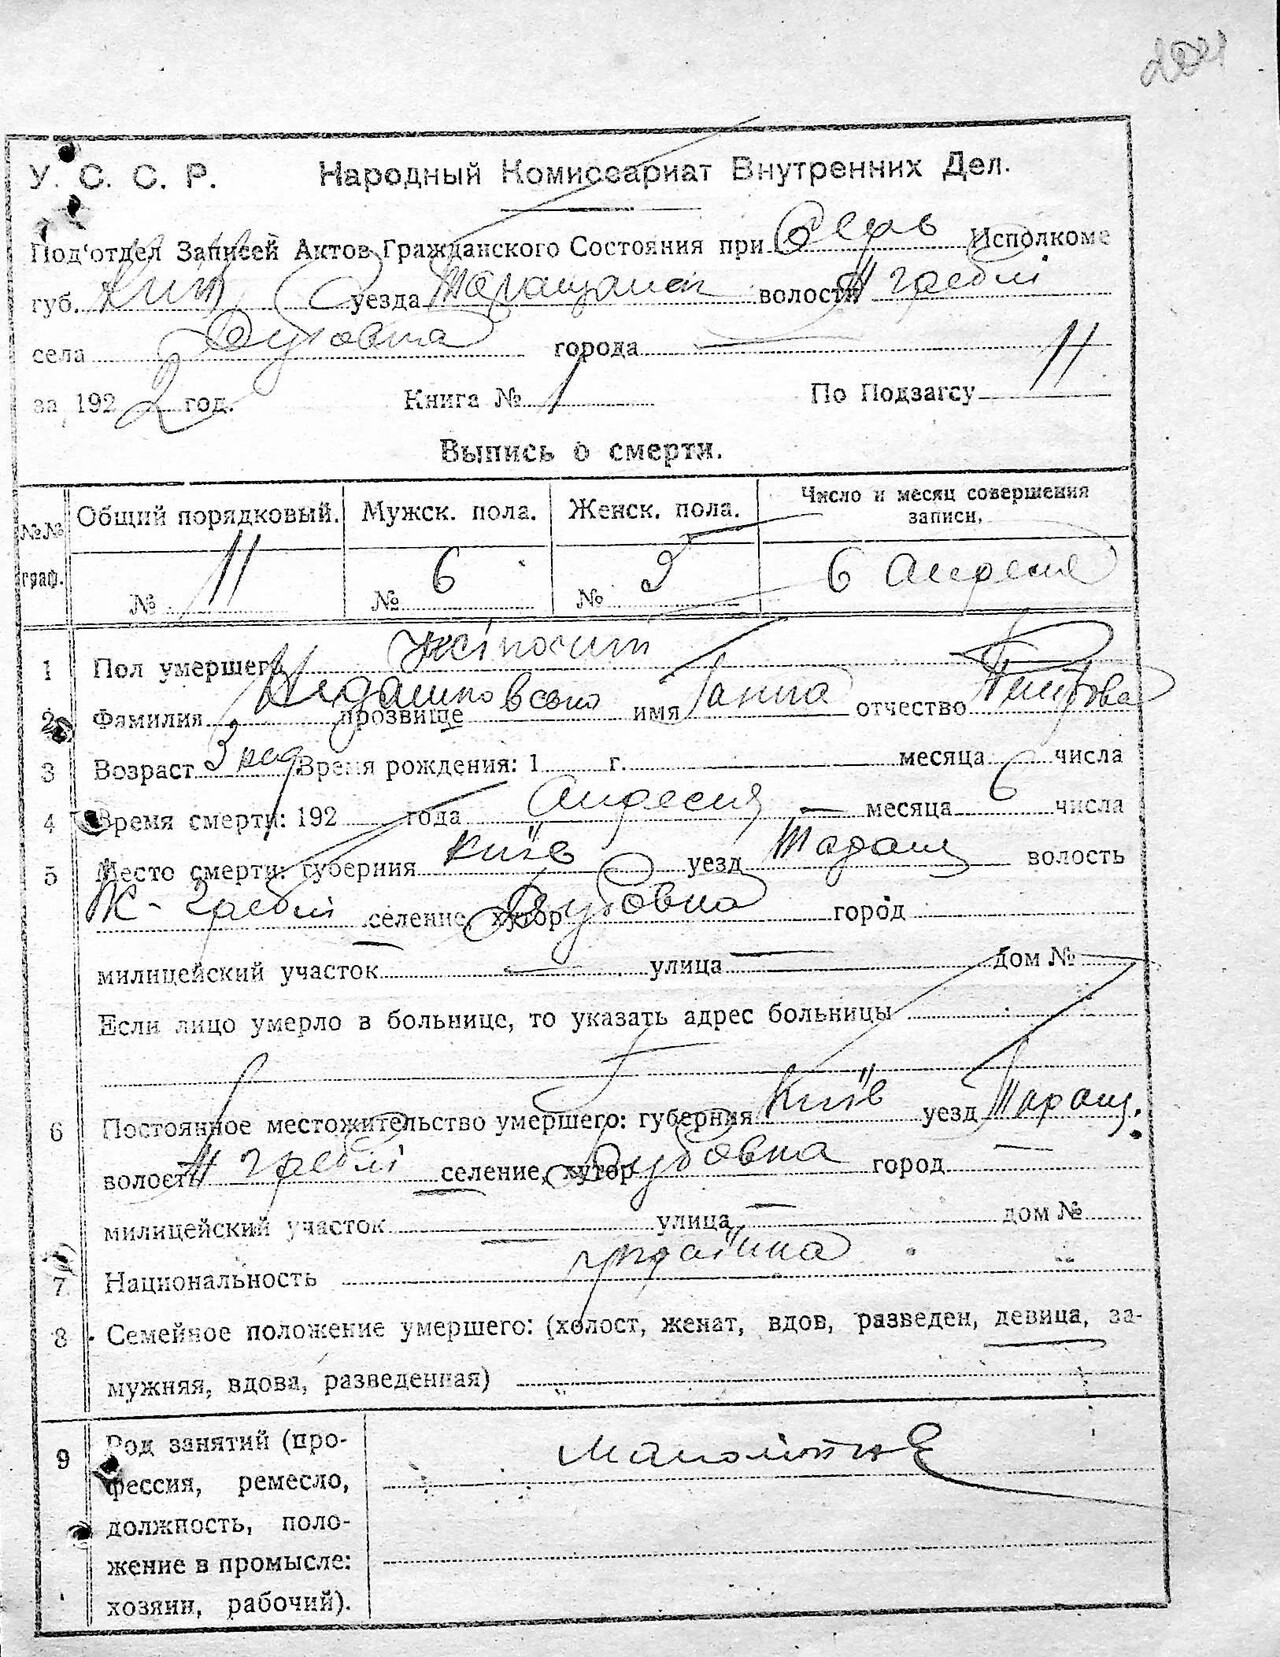 204
У. С. С. Р. Народный Комиссариат Внутренних Дел.
Под'отдел Записей Актов Гражданского Состояния при Исполкоме
губ. Київ уезда Таращанск волости гребля
села Дубовка города
за 1922 год. Книга № 1 По Подзагсу 11
Выпись о смерти.
№№ граф. Общий порядковый. Мужск. пола. Женск. пола. Число и месяц совершения записи.
№ 11 № 6 № 5 6 Апреля
1 Пол умершего жіночий
2 Фамилия прозвище имя Ганна отчество
3 Возраст 3 Время рождения: 1 г. месяца числа
4 Время смерти: 192 года Апреля месяца 6 числа
5 Место смерти: губерния Київ уезд Таращ волость
К-Гребля селение, хутор Дубовка город
милицейский участок улица дом №
Если лицо умерло в больнице, то указать адрес больницы
6 Постоянное местожительство умершего: губерния Київ уезд Таращ.
волость гребля селение, хутор Дубовка город
милицейский участок улица дом №
7 Национальность україпка
8 Семейное положение умершего: (холост, женат, вдов, разведен, девица, за-
мужняя, вдова, разведенная)
9 Род занятий (про-
фессия, ремесло,
должность, поло-
жение в промысле:
хозяин, рабочий).
малолітнє